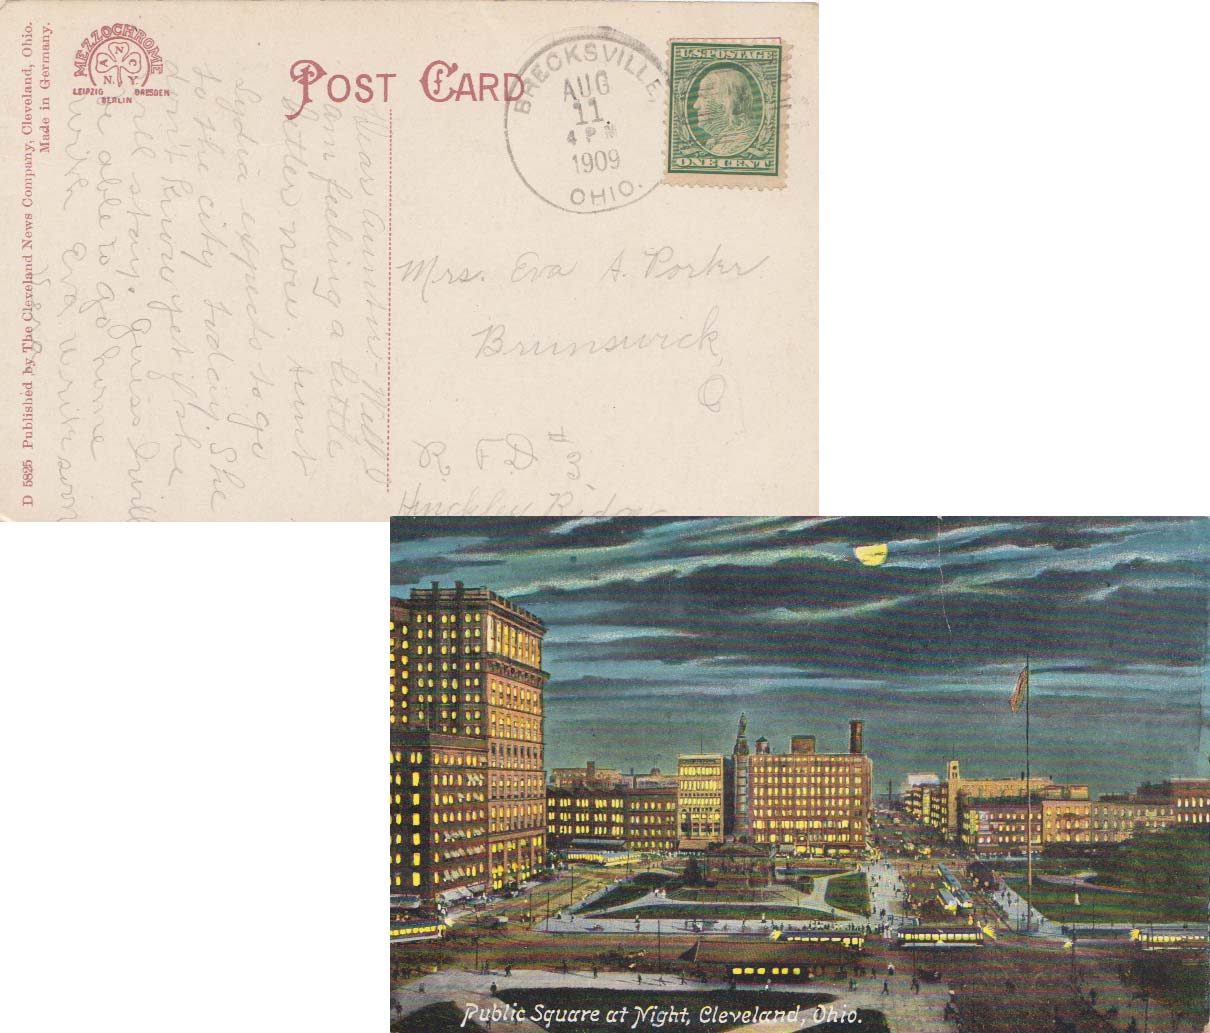 D 5825 Published by The Cleveland News Company, Cleveland, Ohio.
Made in Germany.
MEZZOCHROME
A N C
N.Y.
LEIPZIG DRESDEN
BERLIN
POST CARD
BRECKSVILLE,
AUG
11
4 PM
1909
OHIO.
U.S. POSTAGE
ONE CENT
Dear Aunty:- Well I
am feeling a little
better now. Aunt
Lydia expects to go
to the city today. She
don't know yet if she
will stay. guess I will
be able to go home
with Eva write soon
Mrs. Eva A. Porter
Brunswick,
O
R. F.D. #3.
Hinckley Ridge
Public Square at Night, Cleveland, Ohio.